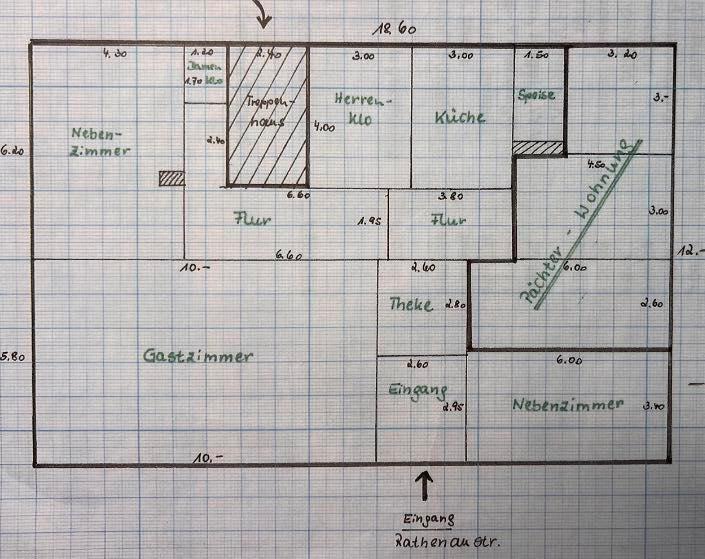 18.60
4.30
1.20
2.40
3.00
3.00
1.50
3.20
Damen
1.70 Klo
Treppen-
haus
Herren-
klo
Küche
Speise
3.-
Neben-
zimmer
4.00
2.40
6.20
4.50
6.60
3.80
Flur
1.95
Flur
3.00
Pächter - Wohnung
12.-
6.60
10.-
2.60
6.00
Theke
2.80
2.60
Gastzimmer
5.80
2.60
6.00
Eingang
2.95
Nebenzimmer
3.40
10.-
Eingang
Rathenaustr.